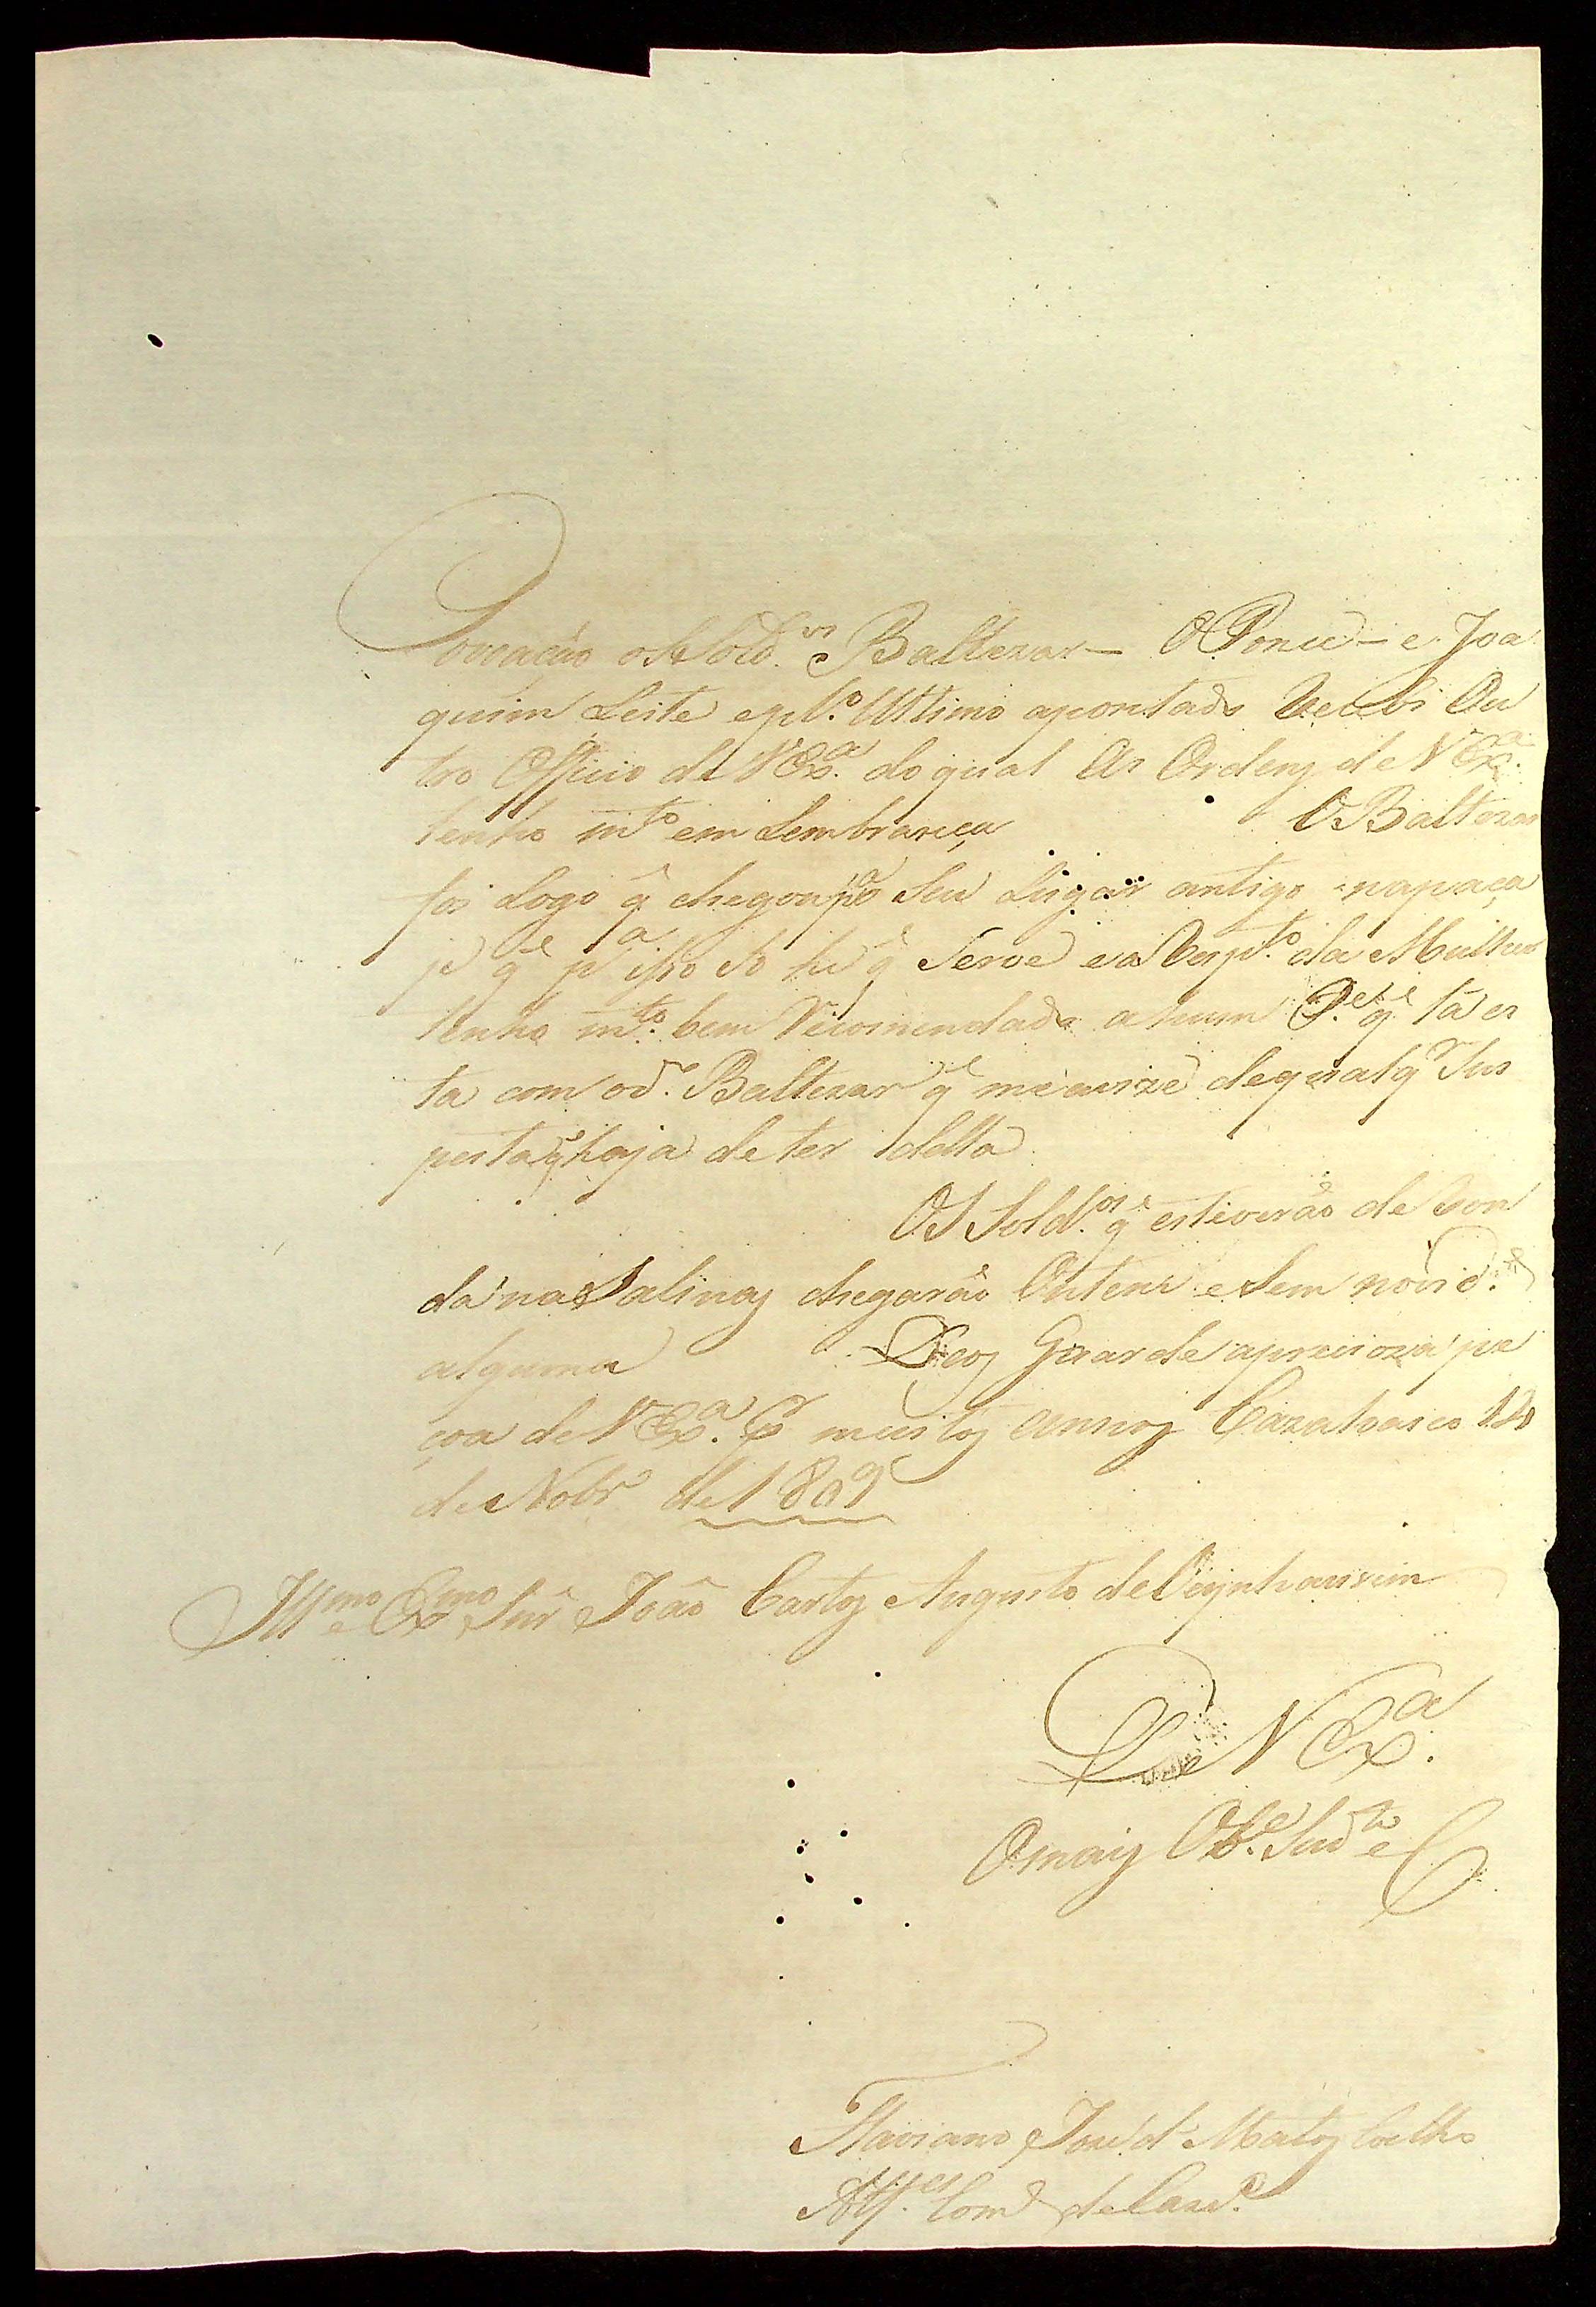 os Sold.os Baltezar — O Ponce — e Joa
quim Leite e pl.o Ultimo apontado Recebi Ou
tro Officio de V Ex.a do qual As Ordens de V Ex.a
tenho m.to em Lembrança O Baltezar
foi Logo q̃ chegou p.a o Seu Lugar antigo na paça
je q.e p.a iso So he q̃ Serve e a Resp.to da Mulher
tenho m.to bem Recomendado a hum q.e lá es
ta com o d.o Baltezar q.e me avize de qualq.r Sus
peita q.e haja de ter della
Os Sold.os q.e estiverão de Ron
da nas Salinas chegarão Ontem e Sem novid.e
alguma Deos Guarde a precioza pe
çoa de V Ex.a P.r muitos annos Cazalvasco 12
de Nobr.o de 1809
Ill.mo e Ex.mo Snr̃ João Carlos Augusto de Oeynhausen
De V Ex.a
O mais Ob.e Sud.to e C
Flaviano José d Matos Coelho
Alf.es Com.e de Caz.o